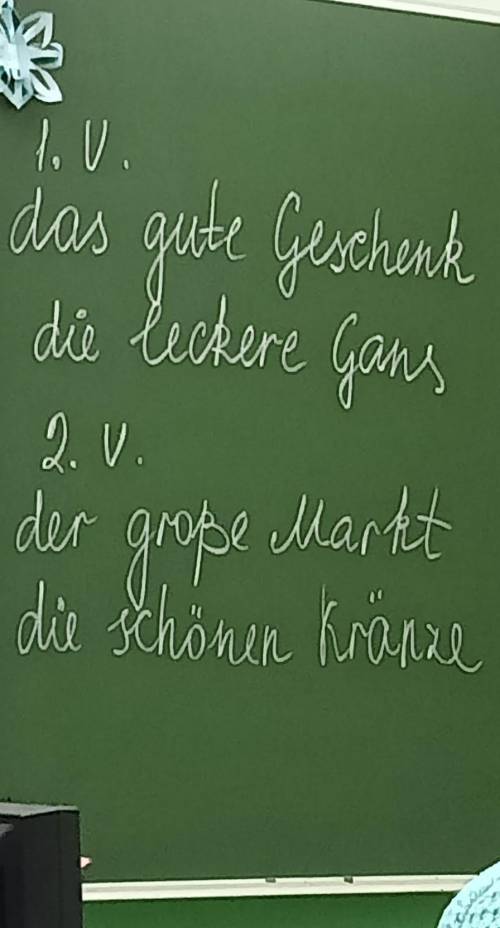 1. V.
das gute Geschenk
die leckere Gans
2. V.
der große Markt
die schönen Kränze